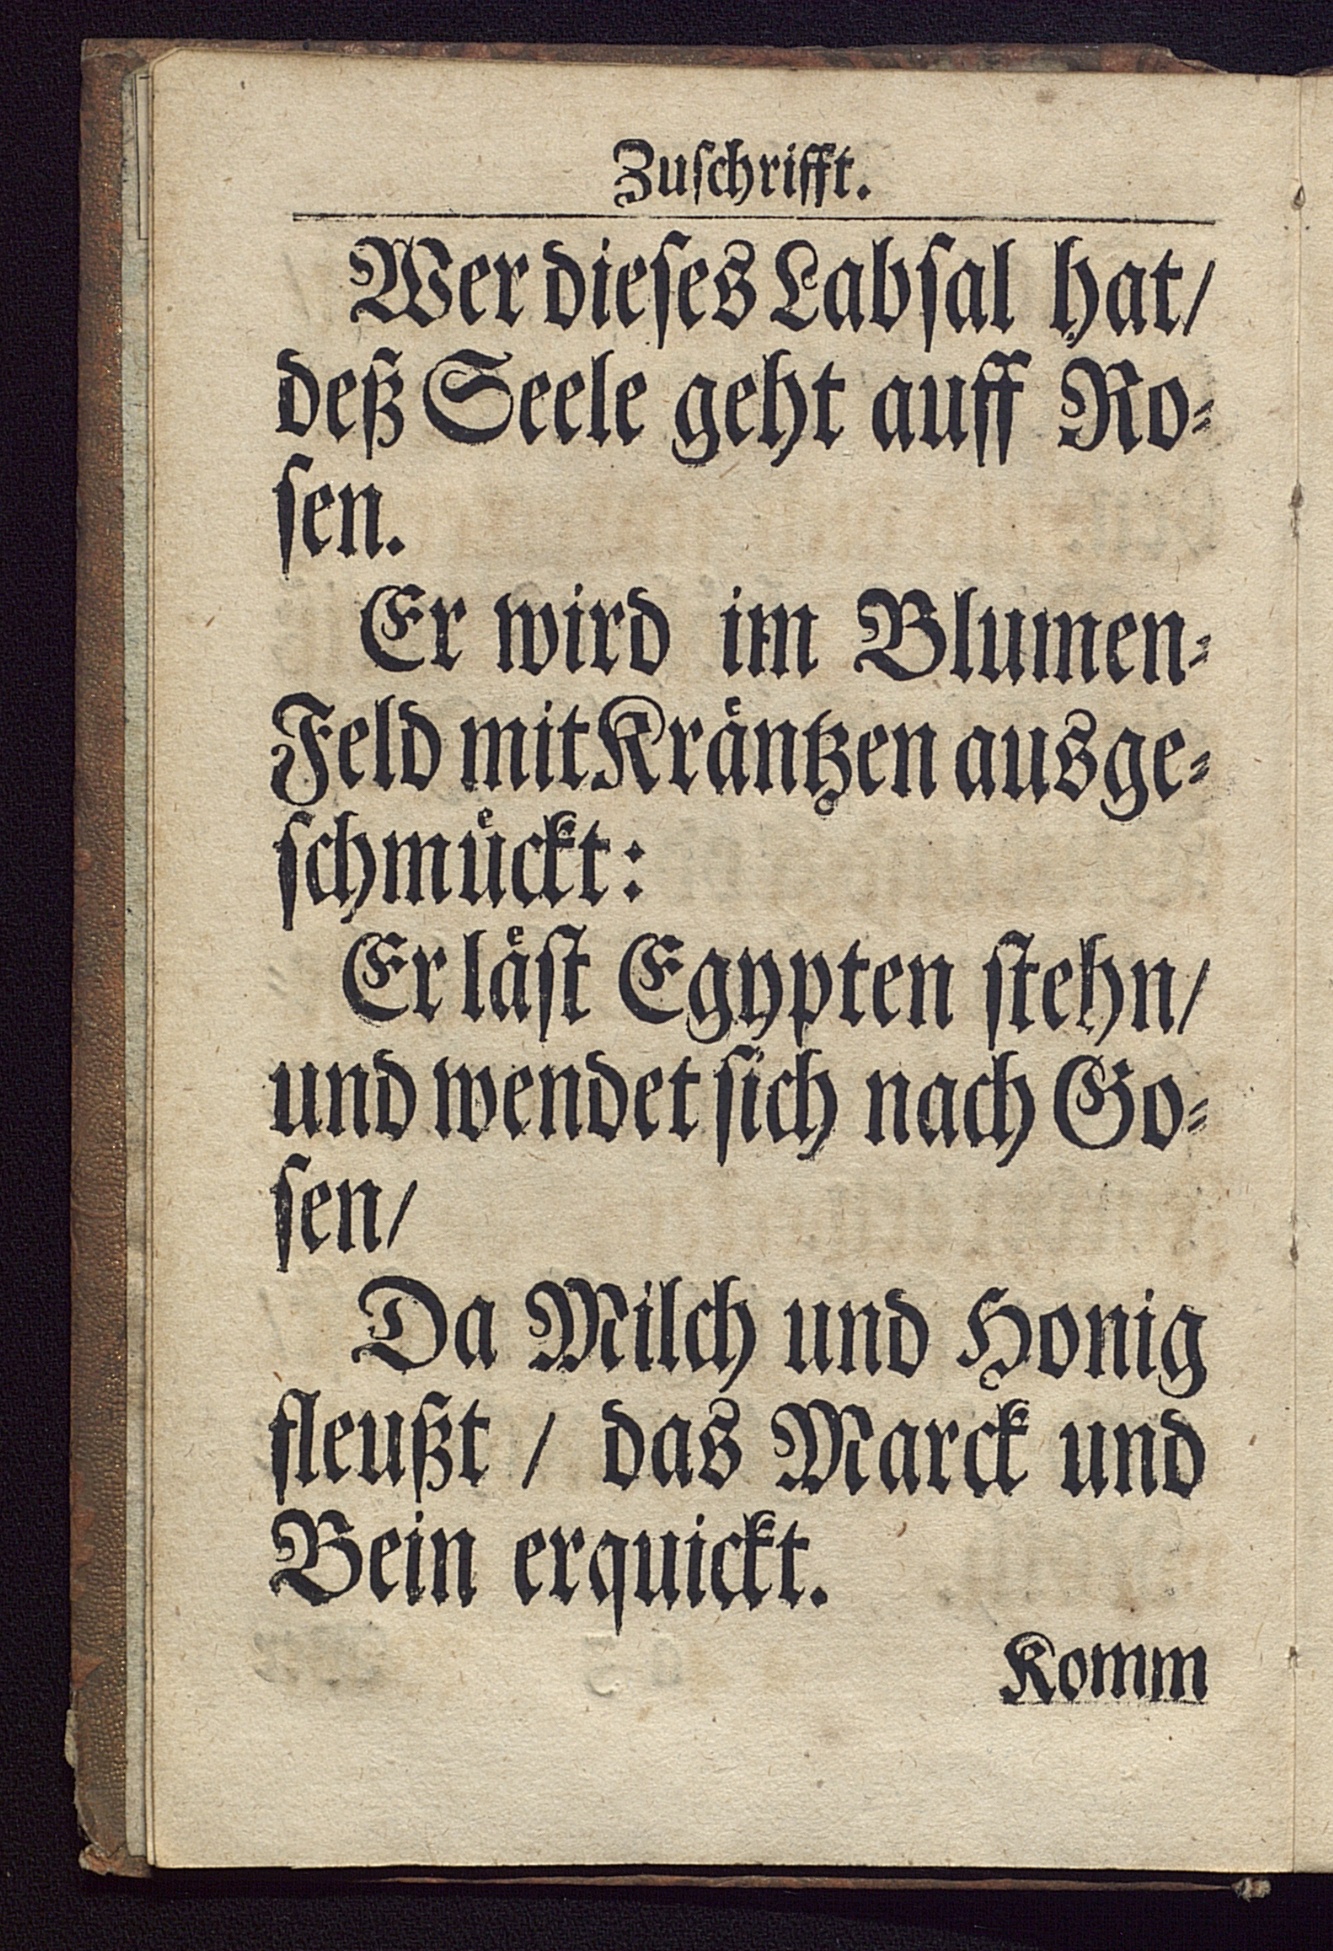 Zuſchrifft.
Wer dieſes Labſal hat/
deß Seele geht auff Ro⸗
ſen.
Er wird im Blumen⸗
Feld mit Kraͤntzen ausge⸗
ſchmuͤckt:
Er laͤſt Egypten ſtehn/
und wendet ſich nach Go⸗
ſen/
Da Milch und Honig
fleußt / das Marck und
Bein erquickt.
Komm